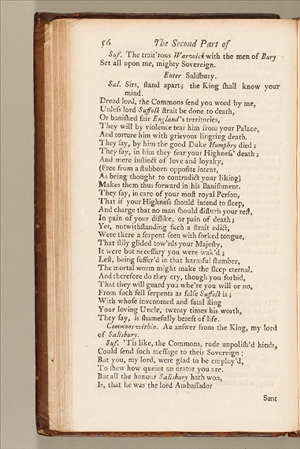 56 The Second Part of
Suf. The trait'rous Warwick with the men of Bury
Set all upon me, mighty Sovereign.
Enter Salisbury.
Sal. Sirs, ſtand apart; the King ſhall know your
mind.
Dread lord, the Commons ſend you word by me,
Unleſs lord Suffolk ſtrait be done to death,
Or baniſhed fair England's territories,
They will by violence tear him from your Palace,
And torture him with grievous lingring death.
They ſay, by him the good Duke Humphry died;
They ſay, in him they fear your Highneſs' death;
And mere inſtinct of love and loyalty,
(Free from a ſtubborn oppoſite intent,
As being thought to contradict your liking)
Makes them thus forward in his Baniſhment.
They ſay, in care of your moſt royal Perſon,
That if your Highneſs ſhould intend to ſleep,
And charge that no man ſhould diſturb your reſt,
In pain of your diſlike, or pain of death;
Yet, notwithſtanding ſuch a ſtrait edict,
Were there a ſerpent ſeen with forked tongue,
That ſlily glided tow'rds your Majeſty,
It were but neceſſary you were wak'd;
Leſt, being ſuffer'd in that harmful ſlumber,
The mortal worm might make the ſleep eternal.
And therefore do they cry, though you forbid,
That they will guard you whe're you will or no,
From ſuch fell ſerpents as falſe Suffolk is;
With whoſe invenomed and fatal ſting
Your loving Uncle, twenty times his worth,
They ſay, is ſhamefully bereft of life.
Commons within. An anſwer from the King, my lord
of Salisbury.
Suf. 'Tis like, the Commons, rude unpoliſh'd hinds,
Could ſend ſuch meſſage to their Sovereign:
But you, my lord, were glad to be employ'd,
To ſhew how queint an orator you are.
But all the honour Salisbury hath won,
Is, that he was the lord Ambaſſador
Sent